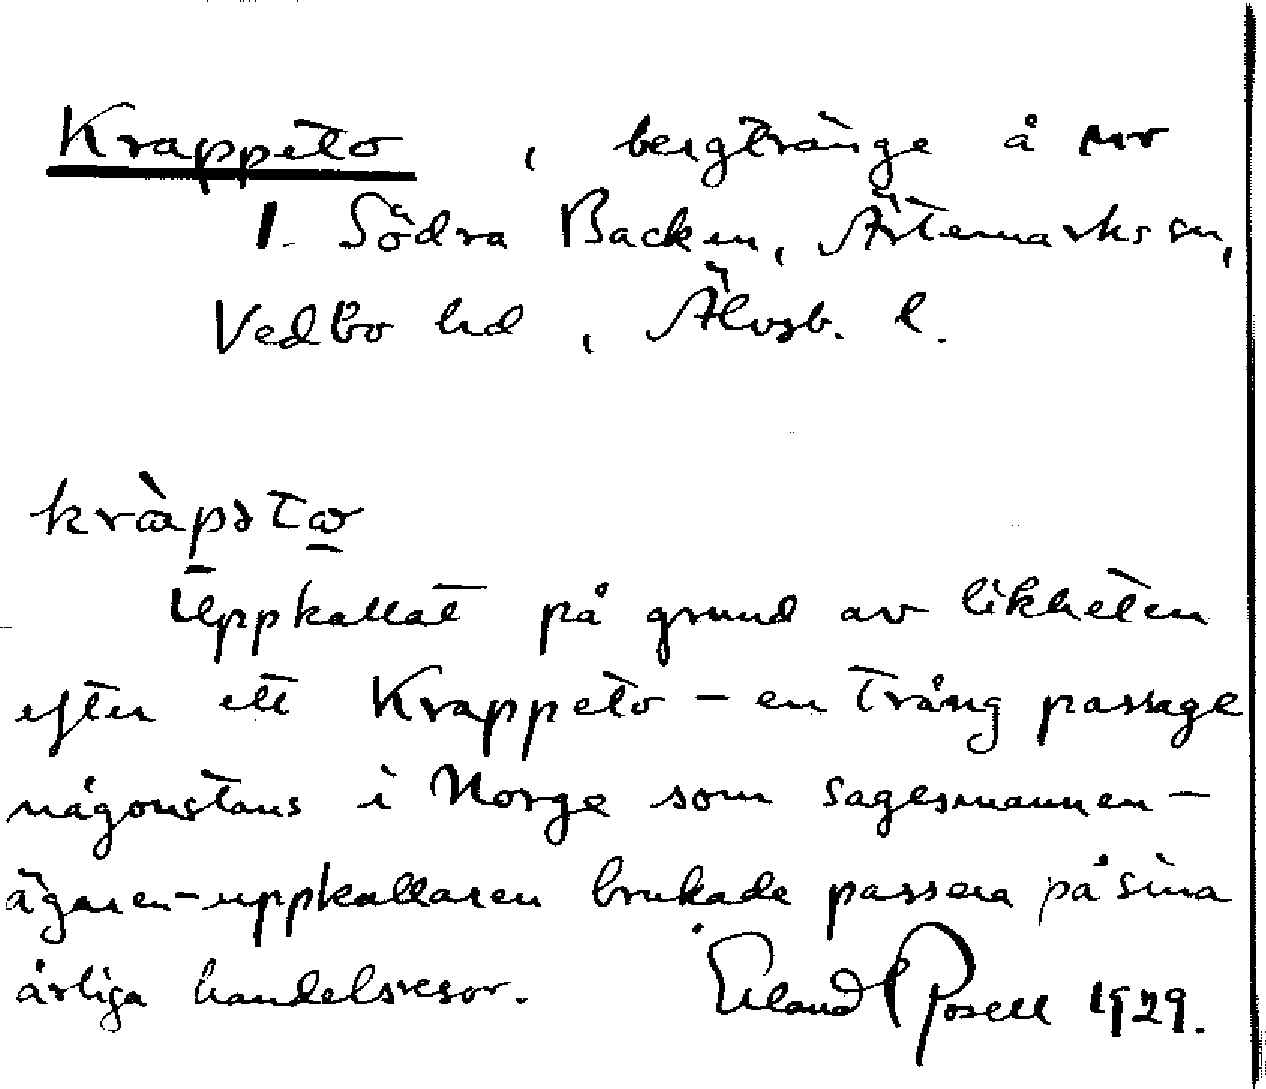 Krappeto, bergtränge å nr
1. Södra Backen, Ärtemarks sn,
Vedbo hd, Älvsb. l.
Uppkallat på grund av likheten
efter ett Krappeto – en trång passage
någonstans i Norge som sagesmannen –
ägaren – uppkallaren brukade passera på sina
årliga handelsresor. Erland Rosell 1929.